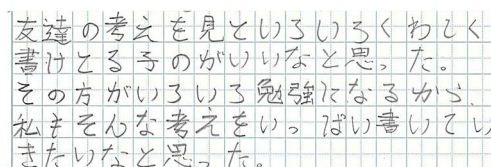 友達の考えを見といろいろくわしく
書けとる子のがいいなと思った。
その方がいろいろ勉強になるから、
私もそんな考えをいっぱい書いてい
きたいなと思った。